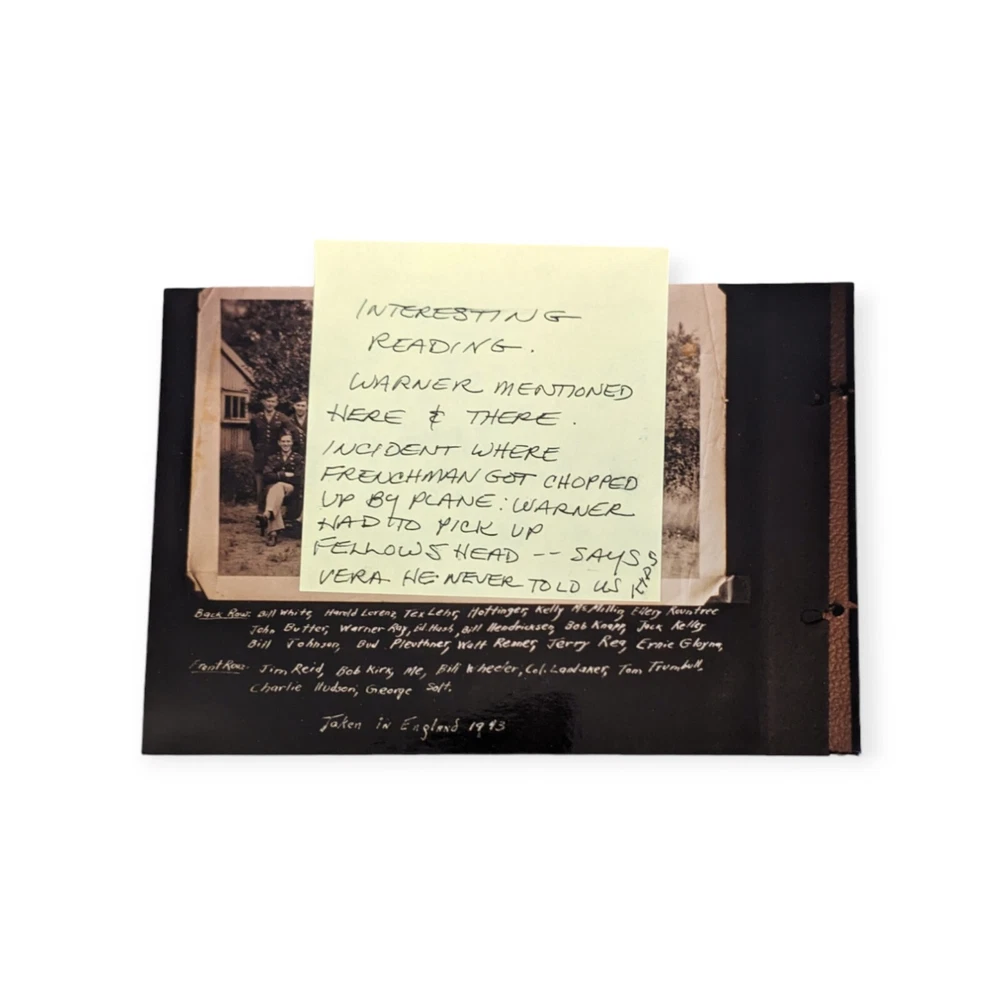 INTERESTING
READING.
WARNER MENTIONED
HERE & THERE.
INCIDENT WHERE
FRENCHMAN GOT CHOPPED
UP BY PLANE: WARNER
HAD TO PICK UP
FELLOWS HEAD -- SAYS
VERA HE NEVER TOLD US KIDS
Back Row: Bill White, Harold Lorenz, Tex Lehr, Hottinger, Kelly McMillin, Ellery Rountree
John Butter, Warner Ray, Ed Hush, Bill Hendricksen, Bob Knapp, Jack Kelley
Bill Johnson, Bud Pleuthner, Walt Remer, Jerry Rea, Ernie Gloyna,
Front Row: Jim Reid, Bob Kirk, Me, Bill Wheeler, Col. Landaker, Tom Trumbull,
Charlie Hudson, George Salt.
Taken in England 1943